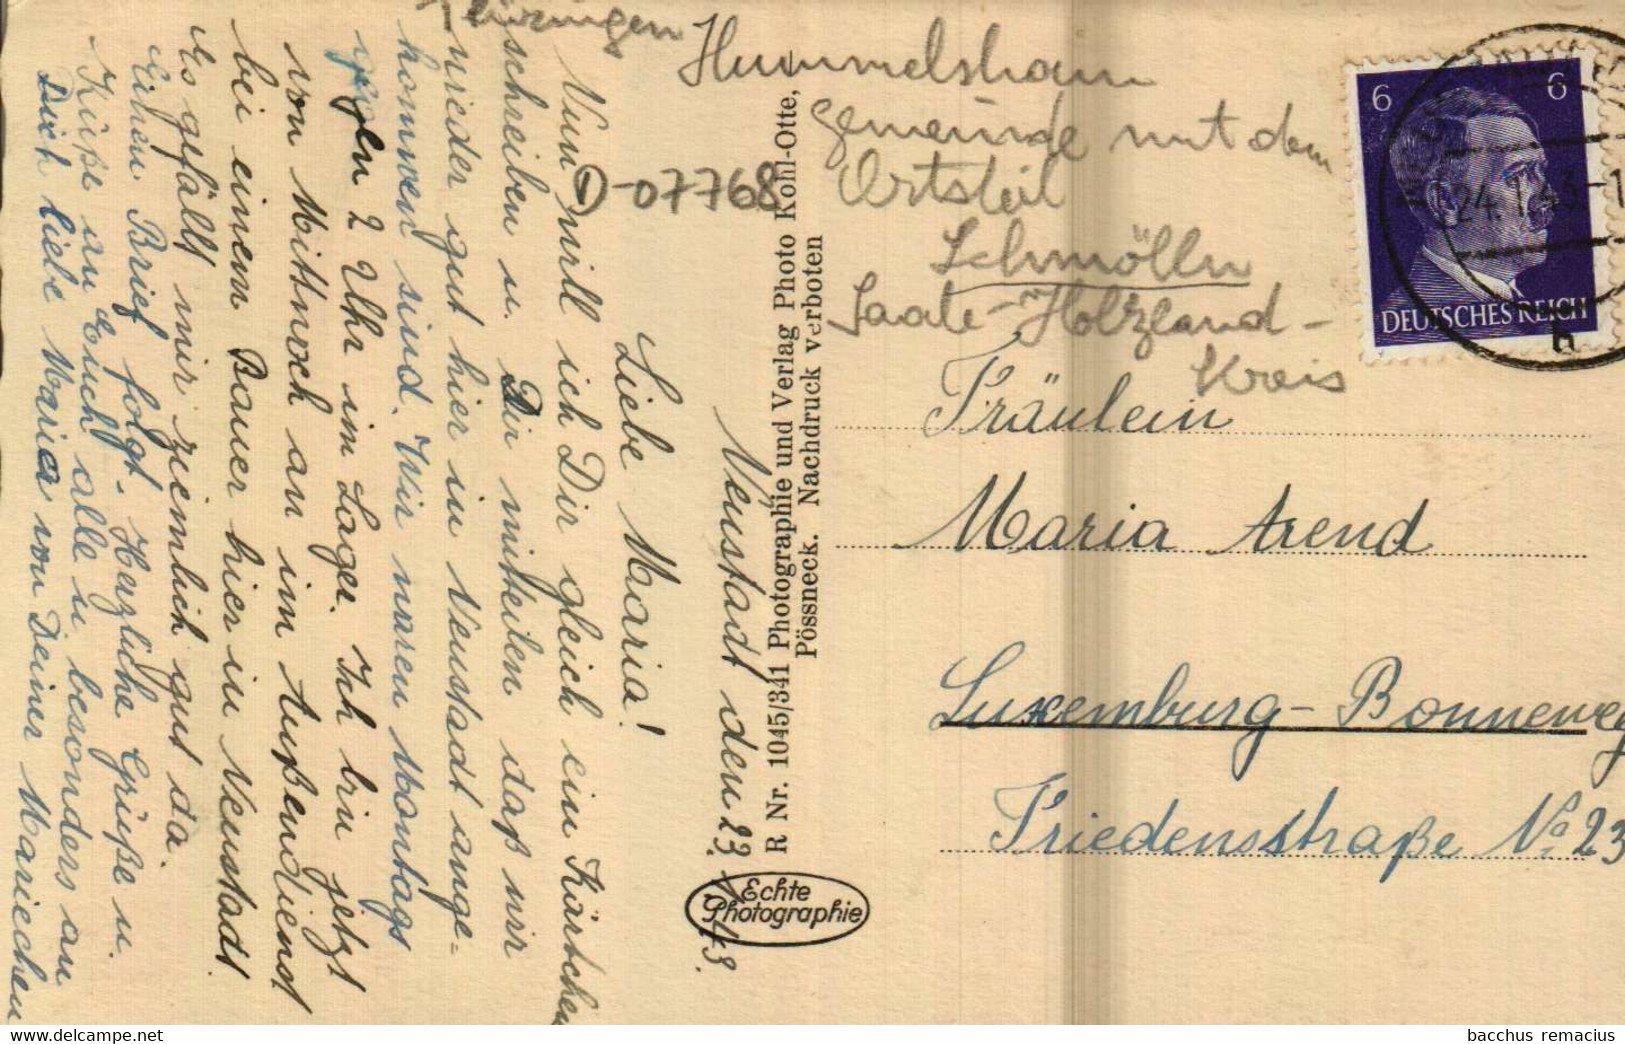 Thüringen
Hummelshain
Gemeinde mit dem
Ortsteil
Schmölln
Saale-Holzland-
Kreis
D-07768
6 6
DEUTSCHES REICH
24.1.43-1
h
Neustadt den 23.1.43.
Liebe Maria!
Nun will ich Dir gleich ein Kärtchen
schreiben u. Dir mitteilen daß wir
wieder gut hier in Neustadt ange-
kommen sind. Wir waren Montags
gegen 2 Uhr im Lager. Ich bin jetzt
von Mittwoch an im Außendienst
bei einem Bauer hier in Neustadt.
Es gefällt mir ziemlich gut da.
Einen Brief folgt. Herzliche Grüße u.
Küße an Euch alle u. besonders an
Dich liebe Maria von Deiner Mariechen
R Nr. 1045/341 Photographie und Verlag Photo Kohl-Otte,
Pössneck. Nachdruck verboten
Echte
Photographie
Fräulein
Maria Arend
Luxemburg-Bonneweg
Friedensstraße No 23
bacchus remacius